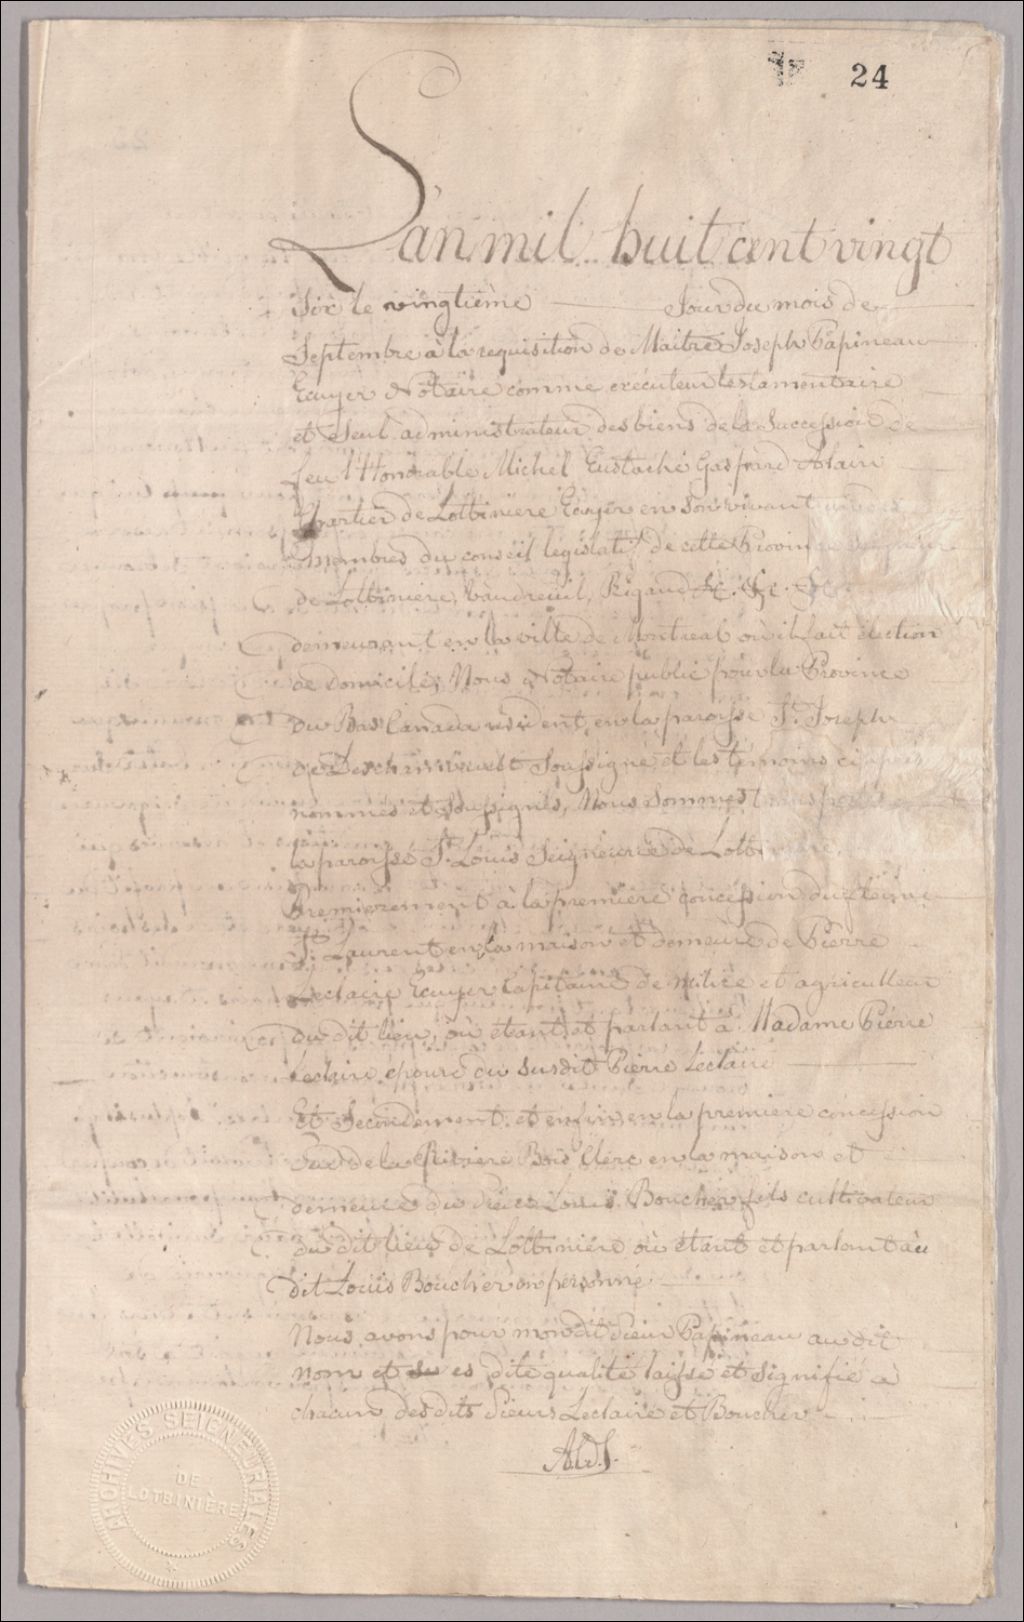 24
L'an mil huit cent vingt
Six le vingtième Jour du mois de
Septembre à la requisition de Maitre Joseph Papineau
Ecuyer Notaire comme exécuteur testamentaire
et Seul administrateur des biens de la Succession de
feu l'Honorable Michel Eustache Gaspard Alain
Chartier de Lotbiniere Ecuyer en son vivant
membres du conseil législatif de cette Provin
de Lotbiniere, Vaudreuil, Rigaud &c. &c. &c
demeurant en la ville de Montreal où il fait élection
de domicile; Nous Notaire public pour la Province
du Bas Canada résident en la paroisse St. Joseph
de Soussigné et les témoins ci après
nommés et soussignés, Nous Sommes
la paroisse St. Louis Seigneurie de Lotbiniere,
Premierement à la premiere concession du fleuve
St. Laurent en la maison et demeure de Pierre
Leclaire Ecuyer Capitaine de milice et agriculteur
du dit lieu, où étant et parlant à Madame Pierre
Leclaire epouse du susdit Pierre Leclaire
Et Secondement et enfin en la premiere concession
Sud de la Riviere Bois Clerc en la maison et
demeure du Sieur Louis Boucher fils cultivateur
du dit lieu de Lotbiniere où étant et parlant au
dit Louis Boucher en personne
Nous avons pour mondit Sieur Papineau au dit
nom et es dite qualité laissé et signifié à
chacun des dits Sieurs Leclaire et Boucher
ARCHIVES SEIGNEURIALES
DE
LOTBINIÈRE